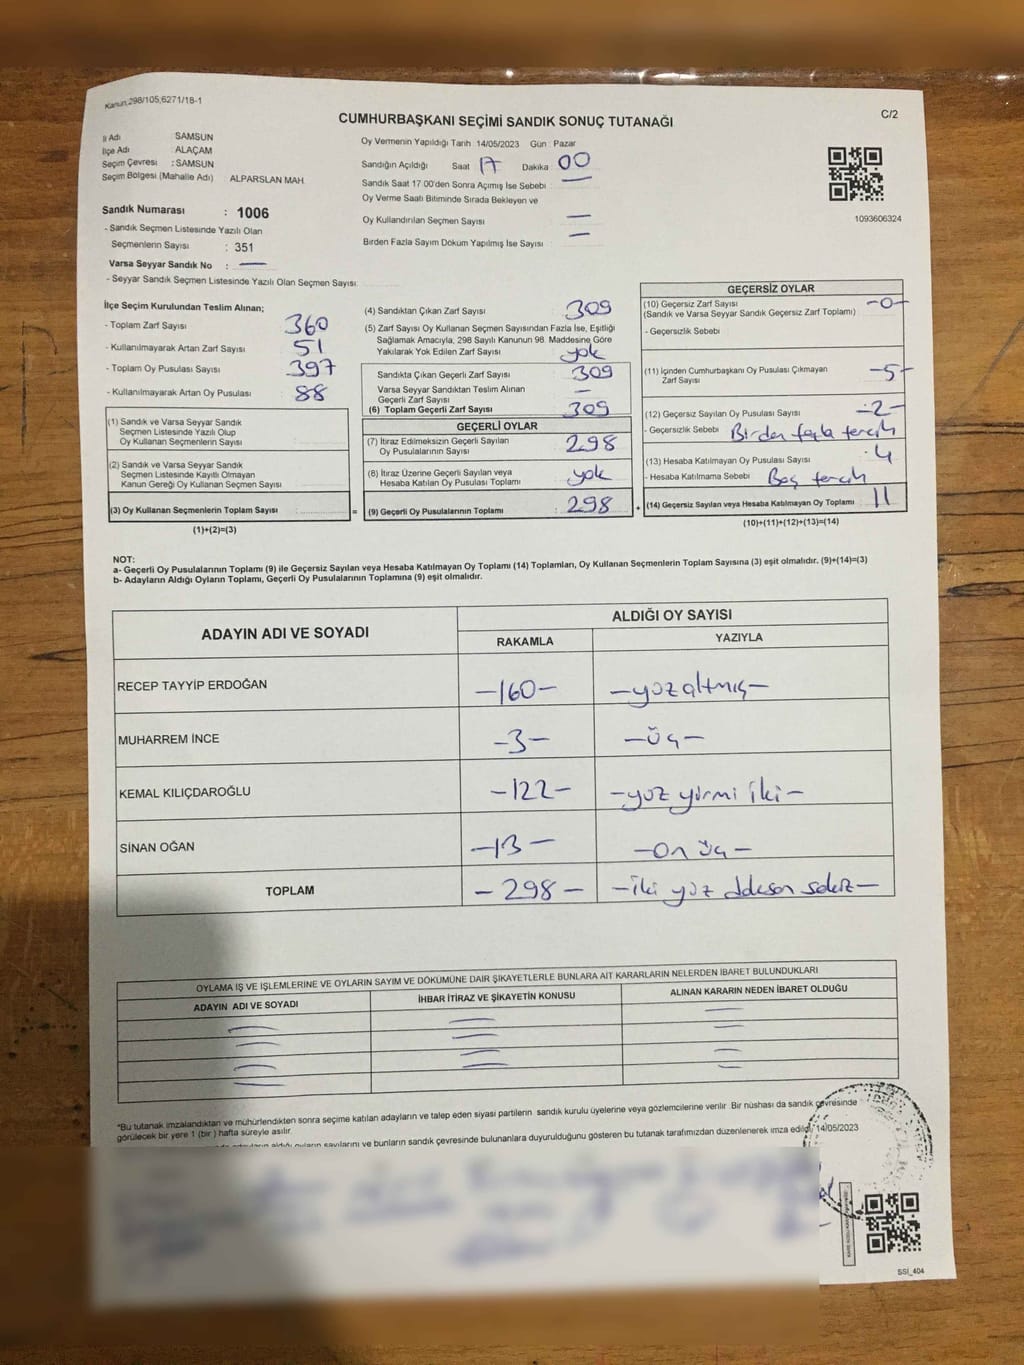 Kanun,298/105,6271/18-1
C/2
CUMHURBAŞKANI SEÇİMİ SANDIK SONUÇ TUTANAĞI
İl Adı SAMSUN
İlçe Adı ALAÇAM
Seçim Çevresi : SAMSUN
Seçim Bölgesi (Mahalle Adı) ALPARSLAN MAH.
Sandık Numarası : 1006
- Sandık Seçmen Listesinde Yazılı Olan
Seçmenlerin Sayısı : 351
Varsa Seyyar Sandık No : —
- Seyyar Sandık Seçmen Listesinde Yazılı Olan Seçmen Sayısı:
Oy Vermenin Yapıldığı Tarih 14/05/2023 Gün : Pazar
Sandığın Açıldığı Saat 17 Dakika 00
Sandık Saat 17:00'den Sonra Açılmış İse Sebebi : —
Oy Verme Saati Bitiminde Sırada Bekleyen ve
Oy Kullandırılan Seçmen Sayısı —
Birden Fazla Sayım Döküm Yapılmış İse Sayısı : —
1093606324
İlçe Seçim Kurulundan Teslim Alınan;
- Toplam Zarf Sayısı 360
- Kullanılmayarak Artan Zarf Sayısı 51
- Toplam Oy Pusulası Sayısı 397
- Kullanılmayarak Artan Oy Pusulası : 88
(1) Sandık ve Varsa Seyyar Sandık
Seçmen Listesinde Yazılı Olup
Oy Kullanan Seçmenlerin Sayısı
(2) Sandık ve Varsa Seyyar Sandık
Seçmen Listesinde Kayıtlı Olmayan
Kanun Gereği Oy Kullanan Seçmen Sayısı
(3) Oy Kullanan Seçmenlerin Toplam Sayısı
(1)+(2)=(3)
(4) Sandıktan Çıkan Zarf Sayısı 309
(5) Zarf Sayısı Oy Kullanan Seçmen Sayısından Fazla İse, Eşitliği
Sağlamak Amacıyla, 298 Sayılı Kanunun 98. Maddesine Göre
Yakılarak Yok Edilen Zarf Sayısı yok
Sandıkta Çıkan Geçerli Zarf Sayısı 309
Varsa Seyyar Sandıktan Teslim Alınan
Geçerli Zarf Sayısı : —
(6) Toplam Geçerli Zarf Sayısı 309
GEÇERLİ OYLAR
(7) İtiraz Edilmeksizin Geçerli Sayılan
Oy Pusulalarının Sayısı : 298
(8) İtiraz Üzerine Geçerli Sayılan veya
Hesaba Katılan Oy Pusulası Toplamı : yok
= (9) Geçerli Oy Pusulalarının Toplamı : 298 +
GEÇERSİZ OYLAR
(10) Geçersiz Zarf Sayısı -0-
(Sandık ve Varsa Seyyar Sandık Geçersiz Zarf Toplamı)
- Geçersizlik Sebebi
(11) İçinden Cumhurbaşkanı Oy Pusulası Çıkmayan
Zarf Sayısı -5-
(12) Geçersiz Sayılan Oy Pusulası Sayısı -2-
- Geçersizlik Sebebi Birden fazla tercih
(13) Hesaba Katılmayan Oy Pusulası Sayısı 4
- Hesaba Katılmama Sebebi Boş tercih
(14) Geçersiz Sayılan veya Hesaba Katılmayan Oy Toplamı 11
(10)+(11)+(12)+(13)=(14)
NOT:
a- Geçerli Oy Pusulalarının Toplamı (9) ile Geçersiz Sayılan veya Hesaba Katılmayan Oy Toplamı (14) Toplamları, Oy Kullanan Seçmenlerin Toplam Sayısına (3) eşit olmalıdır. (9)+(14)=(3)
b- Adayların Aldığı Oyların Toplamı, Geçerli Oy Pusulalarının Toplamına (9) eşit olmalıdır.
ADAYIN ADI VE SOYADI ALDIĞI OY SAYISI
RAKAMLA YAZIYLA
RECEP TAYYİP ERDOĞAN -160- -yüzaltmış-
MUHARREM İNCE -3- -üç-
KEMAL KILIÇDAROĞLU -122- -yüz yirmi iki-
SİNAN OĞAN -13- -on üç-
TOPLAM -298- -iki yüz doksan sekiz-
OYLAMA İŞ VE İŞLEMLERİNE VE OYLARIN SAYIM VE DÖKÜMÜNE DAİR ŞİKAYETLERLE BUNLARA AİT KARARLARIN NELERDEN İBARET BULUNDUKLARI
ADAYIN ADI VE SOYADI İHBAR İTİRAZ VE ŞİKAYETİN KONUSU ALINAN KARARIN NEDEN İBARET OLDUĞU
"Bu tutanak imzalandıktan ve mühürlendikten sonra seçime katılan adayların ve talep eden siyasi partilerin sandık kurulu üyelerine veya gözlemcilerine verilir. Bir nüshası da sandık çevresinde
görülecek bir yere 1 (bir) hafta süreyle asılır.
aldığı oyların sayılarını ve bunların sandık çevresinde bulunanlara duyurulduğunu gösteren bu tutanak tarafımızdan düzenlenerek imza edildi. 14/05/2023
SSİ_404